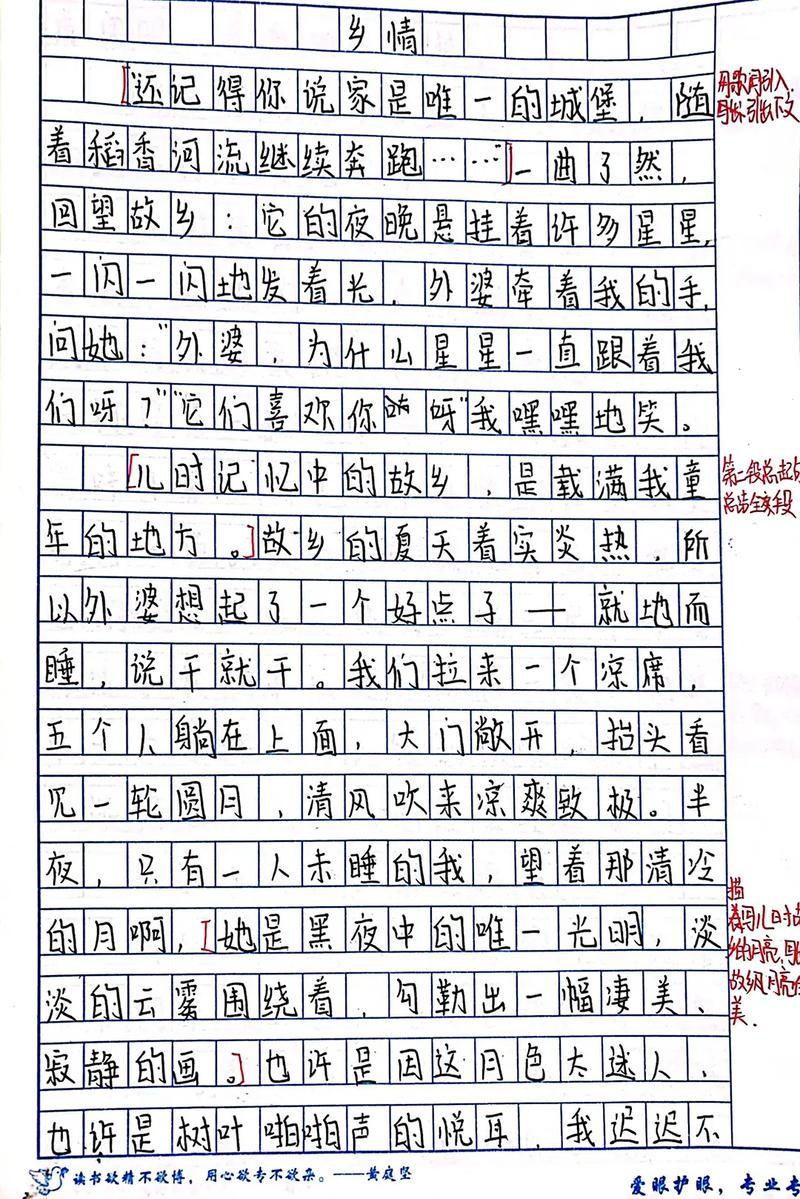 乡情
"还记得你说家是唯一的城堡，随
着稻香河流继续奔跑……"一曲了然，
回望故乡：它的夜晚悬挂着许多星星，
一闪一闪地发着光，外婆牵着我的手，
问她："外婆，为什么星星一直跟着我
们呀？""它们喜欢你呀"我嘿嘿地笑。
儿时记忆中的故乡，是载满我童
年的地方。故乡的夏天着实炎热，所
以外婆想起了一个好点子——就地而
睡，说干就干。我们拉来一个凉席，
五个人躺在上面，大门敞开，抬头看
见一轮圆月，清风吹来凉爽致极。半
夜，只有一人未睡的我，望着那清冷
的月啊，她是黑夜中的唯一光明，淡
淡的云雾围绕着，勾勒出一幅凄美、
寂静的画。也许是因这月色太迷人，
也许是树叶啪啪声的悦耳，我迟迟不
用歌词引入，
引出下文
第二段总起句
总结全段
描
写儿时故
乡的月亮，写出
故乡月亮的
美.
读书欲精不欲博，用心欲专不欲杂。——黄庭坚
爱眼护眼，专业专